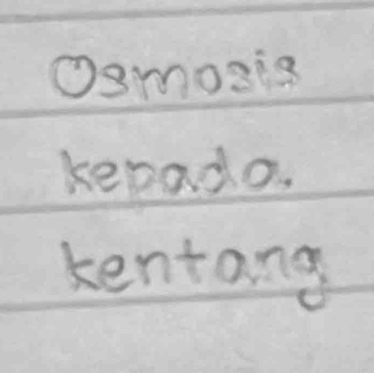 Osmosis
kepada
kentang